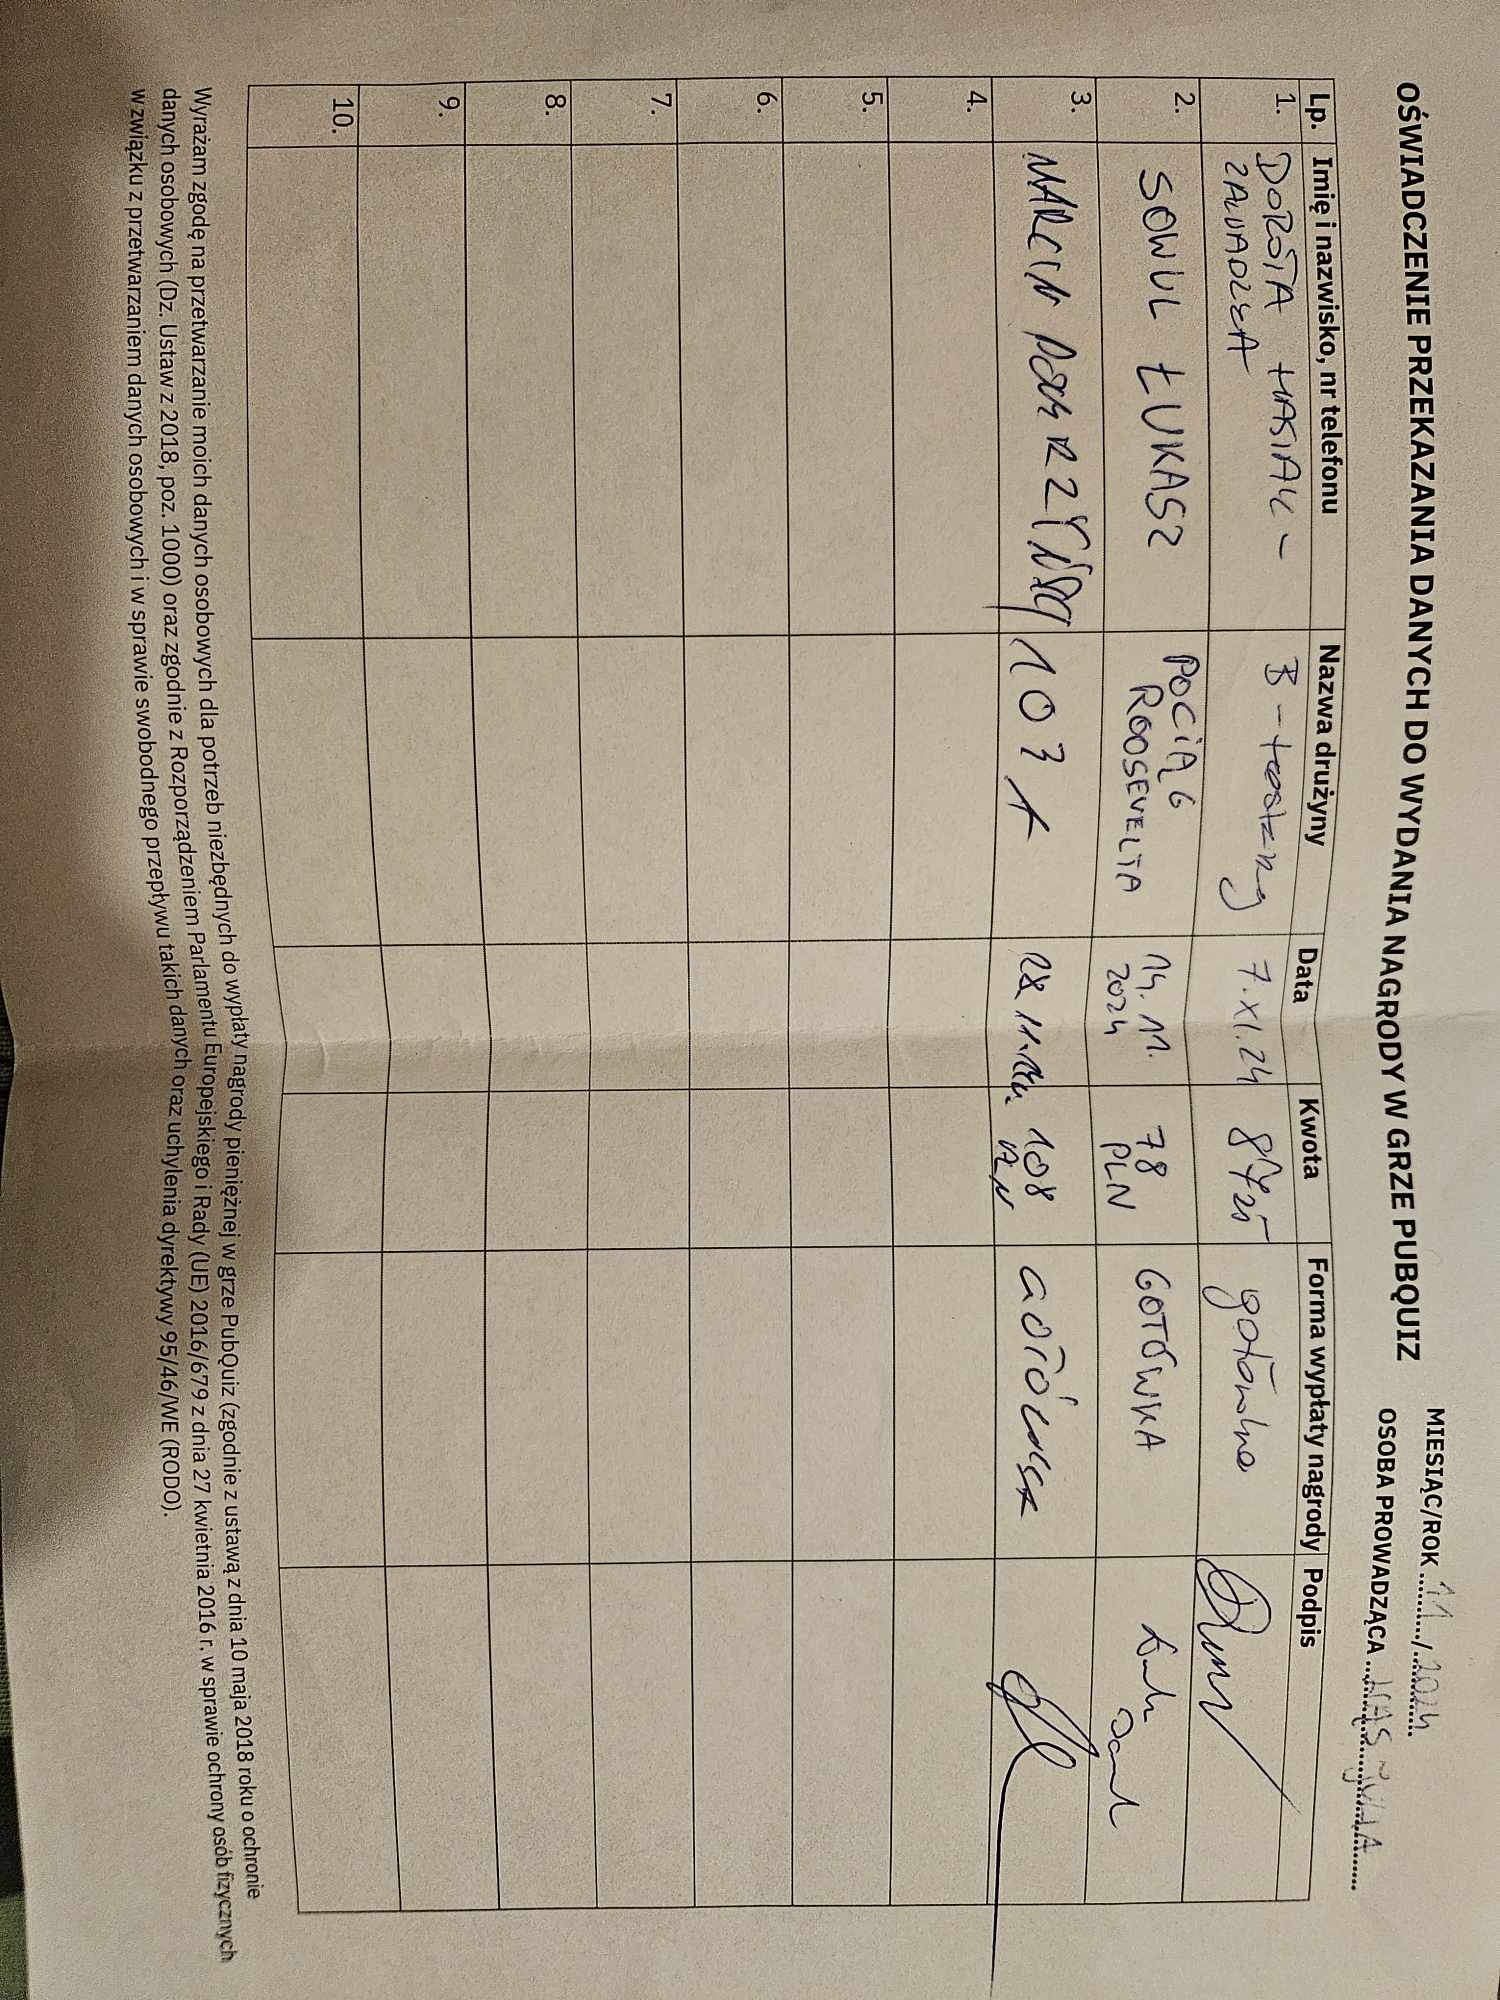 OŚWIADCZENIE PRZEKAZANIA DANYCH DO WYDANIA NAGRODY W GRZE PUBQUIZ
MIESIĄC/ROK 11 / 2024
OSOBA PROWADZĄCA
Lp. Imię i nazwisko, nr telefonu Nazwa drużyny Data Kwota Forma wypłaty nagrody Podpis
1. DOROTA 7.XI.24 gotówka
2. SOWUL ŁUKASZ POCIĄG 14.11. 78 GOTÓWKA
ROOSEVELTA 2024 PLN
3. MARCIN 108
PLN
4.
5.
6.
7.
8.
9.
10.
Wyrażam zgodę na przetwarzanie moich danych osobowych dla potrzeb niezbędnych do wypłaty nagrody pieniężnej w grze PubQuiz (zgodnie z ustawą z dnia 10 maja 2018 roku o ochronie
danych osobowych (Dz. Ustaw z 2018, poz. 1000) oraz zgodnie z Rozporządzeniem Parlamentu Europejskiego i Rady (UE) 2016/679 z dnia 27 kwietnia 2016 r. w sprawie ochrony osób fizycznych
w związku z przetwarzaniem danych osobowych i w sprawie swobodnego przepływu takich danych oraz uchylenia dyrektywy 95/46/WE (RODO).